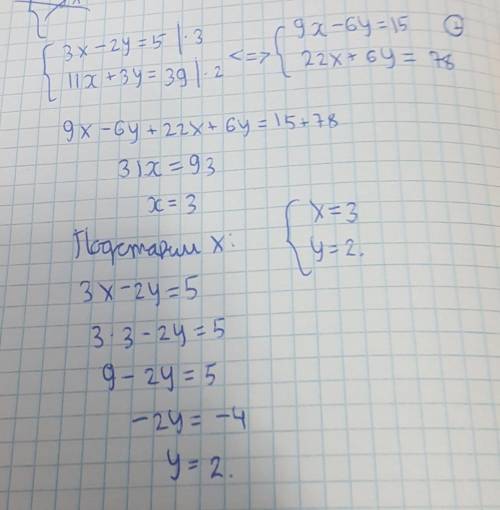 { 3x-2y=5 |·3 <=> { 9x-6y=15 ⊕
11x+3y=39 |·2 22x+6y=78
9x-6y+22x+6y=15+78
31x=93
x=3
Подставим x:
{ x=3
y=2.
3x-2y=5
3·3-2y=5
9-2y=5
-2y=-4
y=2.